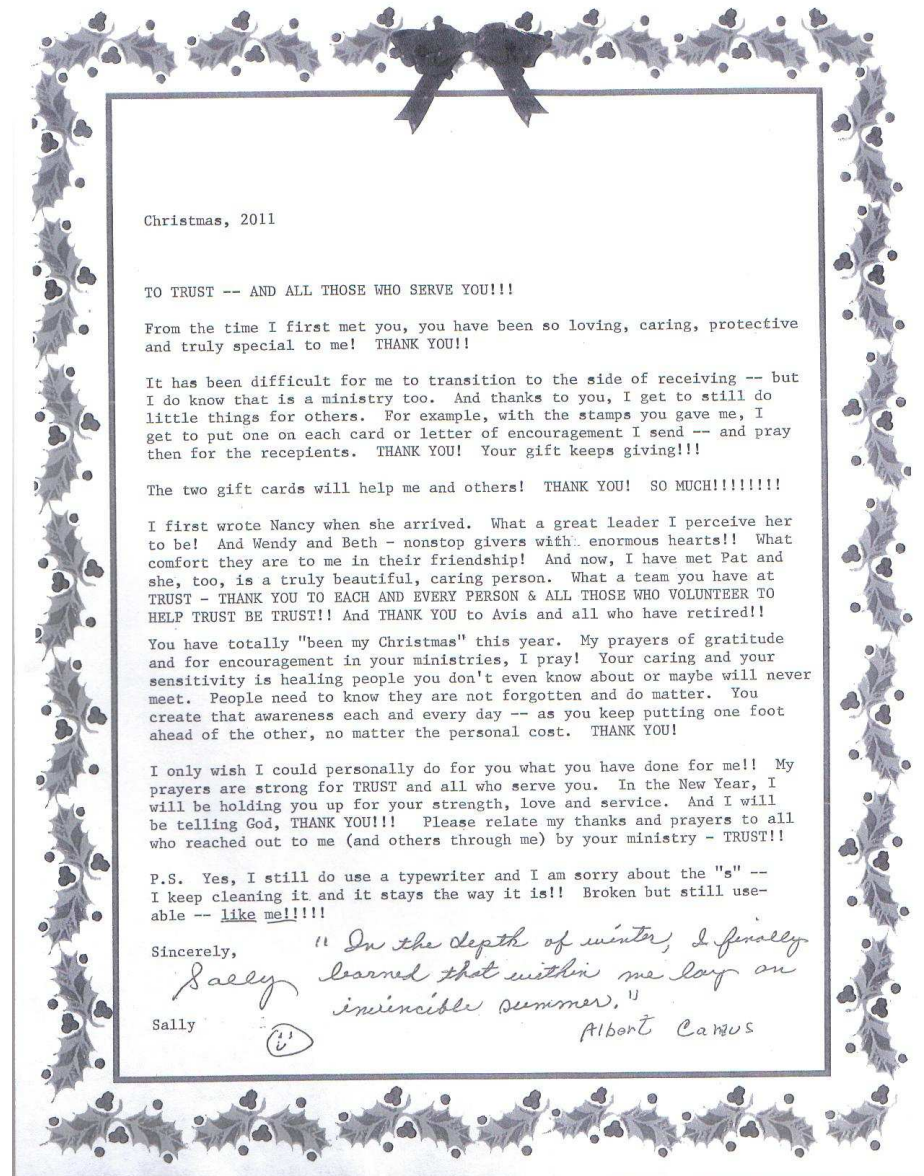 Christmas, 2011
TO TRUST -- AND ALL THOSE WHO SERVE YOU!!!
From the time I first met you, you have been so loving, caring, protective
and truly special to me!  THANK YOU!!
It has been difficult for me to transition to the side of receiving -- but
I do know that is a ministry too.  And thanks to you, I get to still do
little things for others.  For example, with the stamps you gave me, I
get to put one on each card or letter of encouragement I send -- and pray
then for the recepients.  THANK YOU!  Your gift keeps giving!!!
The two gift cards will help me and others!  THANK YOU!  SO MUCH!!!!!!!!
I first wrote Nancy when she arrived.  What a great leader I perceive her
to be!  And Wendy and Beth - nonstop givers with enormous hearts!!  What
comfort they are to me in their friendship!  And now, I have met Pat and
she, too, is a truly beautiful, caring person.  What a team you have at
TRUST - THANK YOU TO EACH AND EVERY PERSON & ALL THOSE WHO VOLUNTEER TO
HELP TRUST BE TRUST!! And THANK YOU to Avis and all who have retired!!
You have totally "been my Christmas" this year.  My prayers of gratitude
and for encouragement in your ministries, I pray!  Your caring and your
sensitivity is healing people you don't even know about or maybe will never
meet.  People need to know they are not forgotten and do matter.  You
create that awareness each and every day -- as you keep putting one foot
ahead of the other, no matter the personal cost.  THANK YOU!
I only wish I could personally do for you what you have done for me!!  My
prayers are strong for TRUST and all who serve you.  In the New Year, I
will be holding you up for your strength, love and service.  And I will
be telling God, THANK YOU!!!   Please relate my thanks and prayers to all
who reached out to me (and others through me) by your ministry - TRUST!!
P.S.  Yes, I still do use a typewriter and I am sorry about the "s" --
I keep cleaning it and it stays the way it is!!  Broken but still use-
able -- like me!!!!!
Sincerely,
Sally
Sally
"In the depth of winter, I finally
learned that within me lay an
invincible summer."
Albert Camus